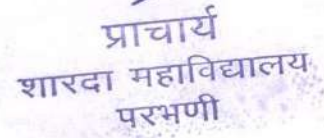 प्राचार्य
शारदा महाविद्यालय
परभणी